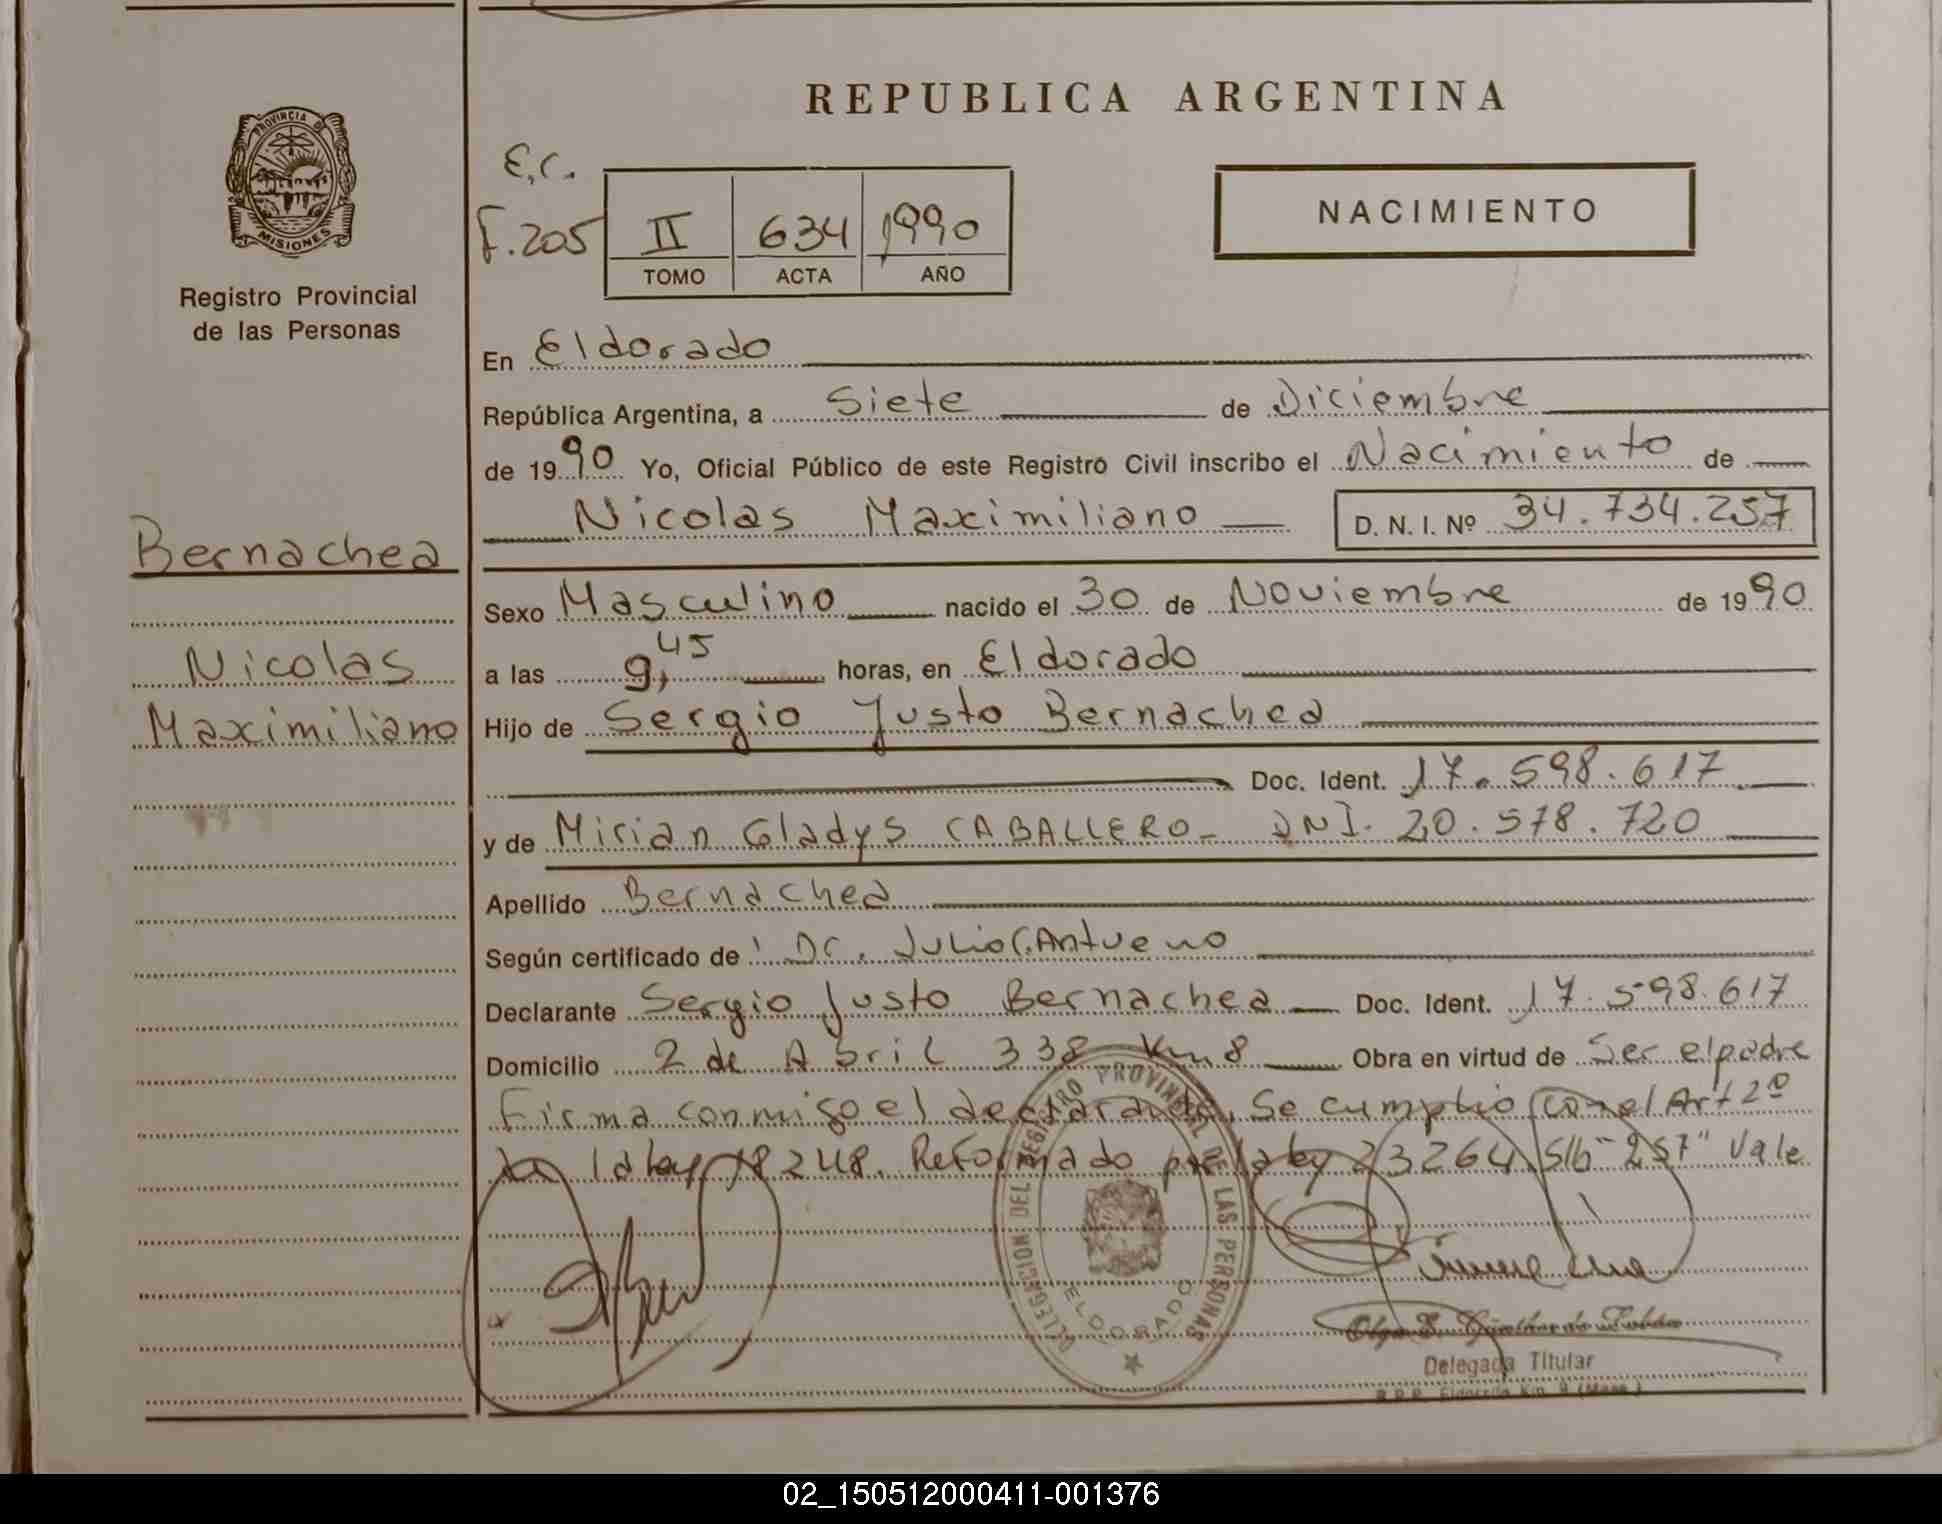 REPUBLICA ARGENTINA
PROVINCIA DE
MISIONES
Registro Provincial
de las Personas
E.C.
F.205
II 634 1990
TOMO ACTA AÑO
NACIMIENTO
En Eldorado
República Argentina, a Siete de Diciembre
de 1990 Yo, Oficial Público de este Registro Civil inscribo el Nacimiento de
Nicolas Maximiliano D. N. I. Nº 34.734.257
Bernachea
Nicolas
Maximiliano
Sexo Masculino nacido el 30 de Noviembre de 1990
a las 9,45 horas, en Eldorado
Hijo de Sergio Justo Bernachea
Doc. Ident. 17.598.617
y de Mirian Gladys CABALLERO- DNI. 20.578.720
Apellido Bernachea
Según certificado de Dr. Julio C. Antueno
Declarante Sergio Justo Bernachea Doc. Ident. 17.598.617
Domicilio 2 de Abril 338 Km 8 Obra en virtud de Ser el padre
Firma conmigo el declarante. Se cumplio con el Art 2º
de la ley 18248. Reformado por la ley 23264. S/b "257" Vale
DELEGACION DEL REGISTRO PROVINCIAL DE LAS PERSONAS
ELDORADO
Delegada Titular
R.P.P. Eldorado Km. 9 (Mnes.)
02_150512000411-001376